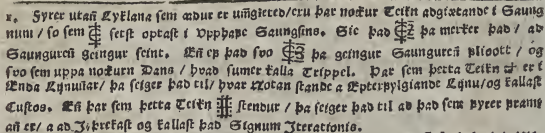 x. Fyrer utan Lyklana sem adur er umgieted/eru þar nockur Teikn adgiætande i Saung
num/so sem sest optast i Upphape Saungsins. Sie þad þa merker þad/ ad
Saunguren geingur seint. En ep þad svo þa geingur Saungureñ plioott/ og
svo sem uppa nockurn Dans/ hvad sumer kalla Trippel. Þar sem þetta Teikn er i
Enda Lynunar/ þa seiger þad til/ hvar Notan stande a Epterpylgiande Lynu/og kallast
Custos. En þar sem þetta Teikn stendur/ þa seiger þad til ad þad sem pyrer pramm
an er/ a ad Jtrekast og kallast þad Signum Iterationis.